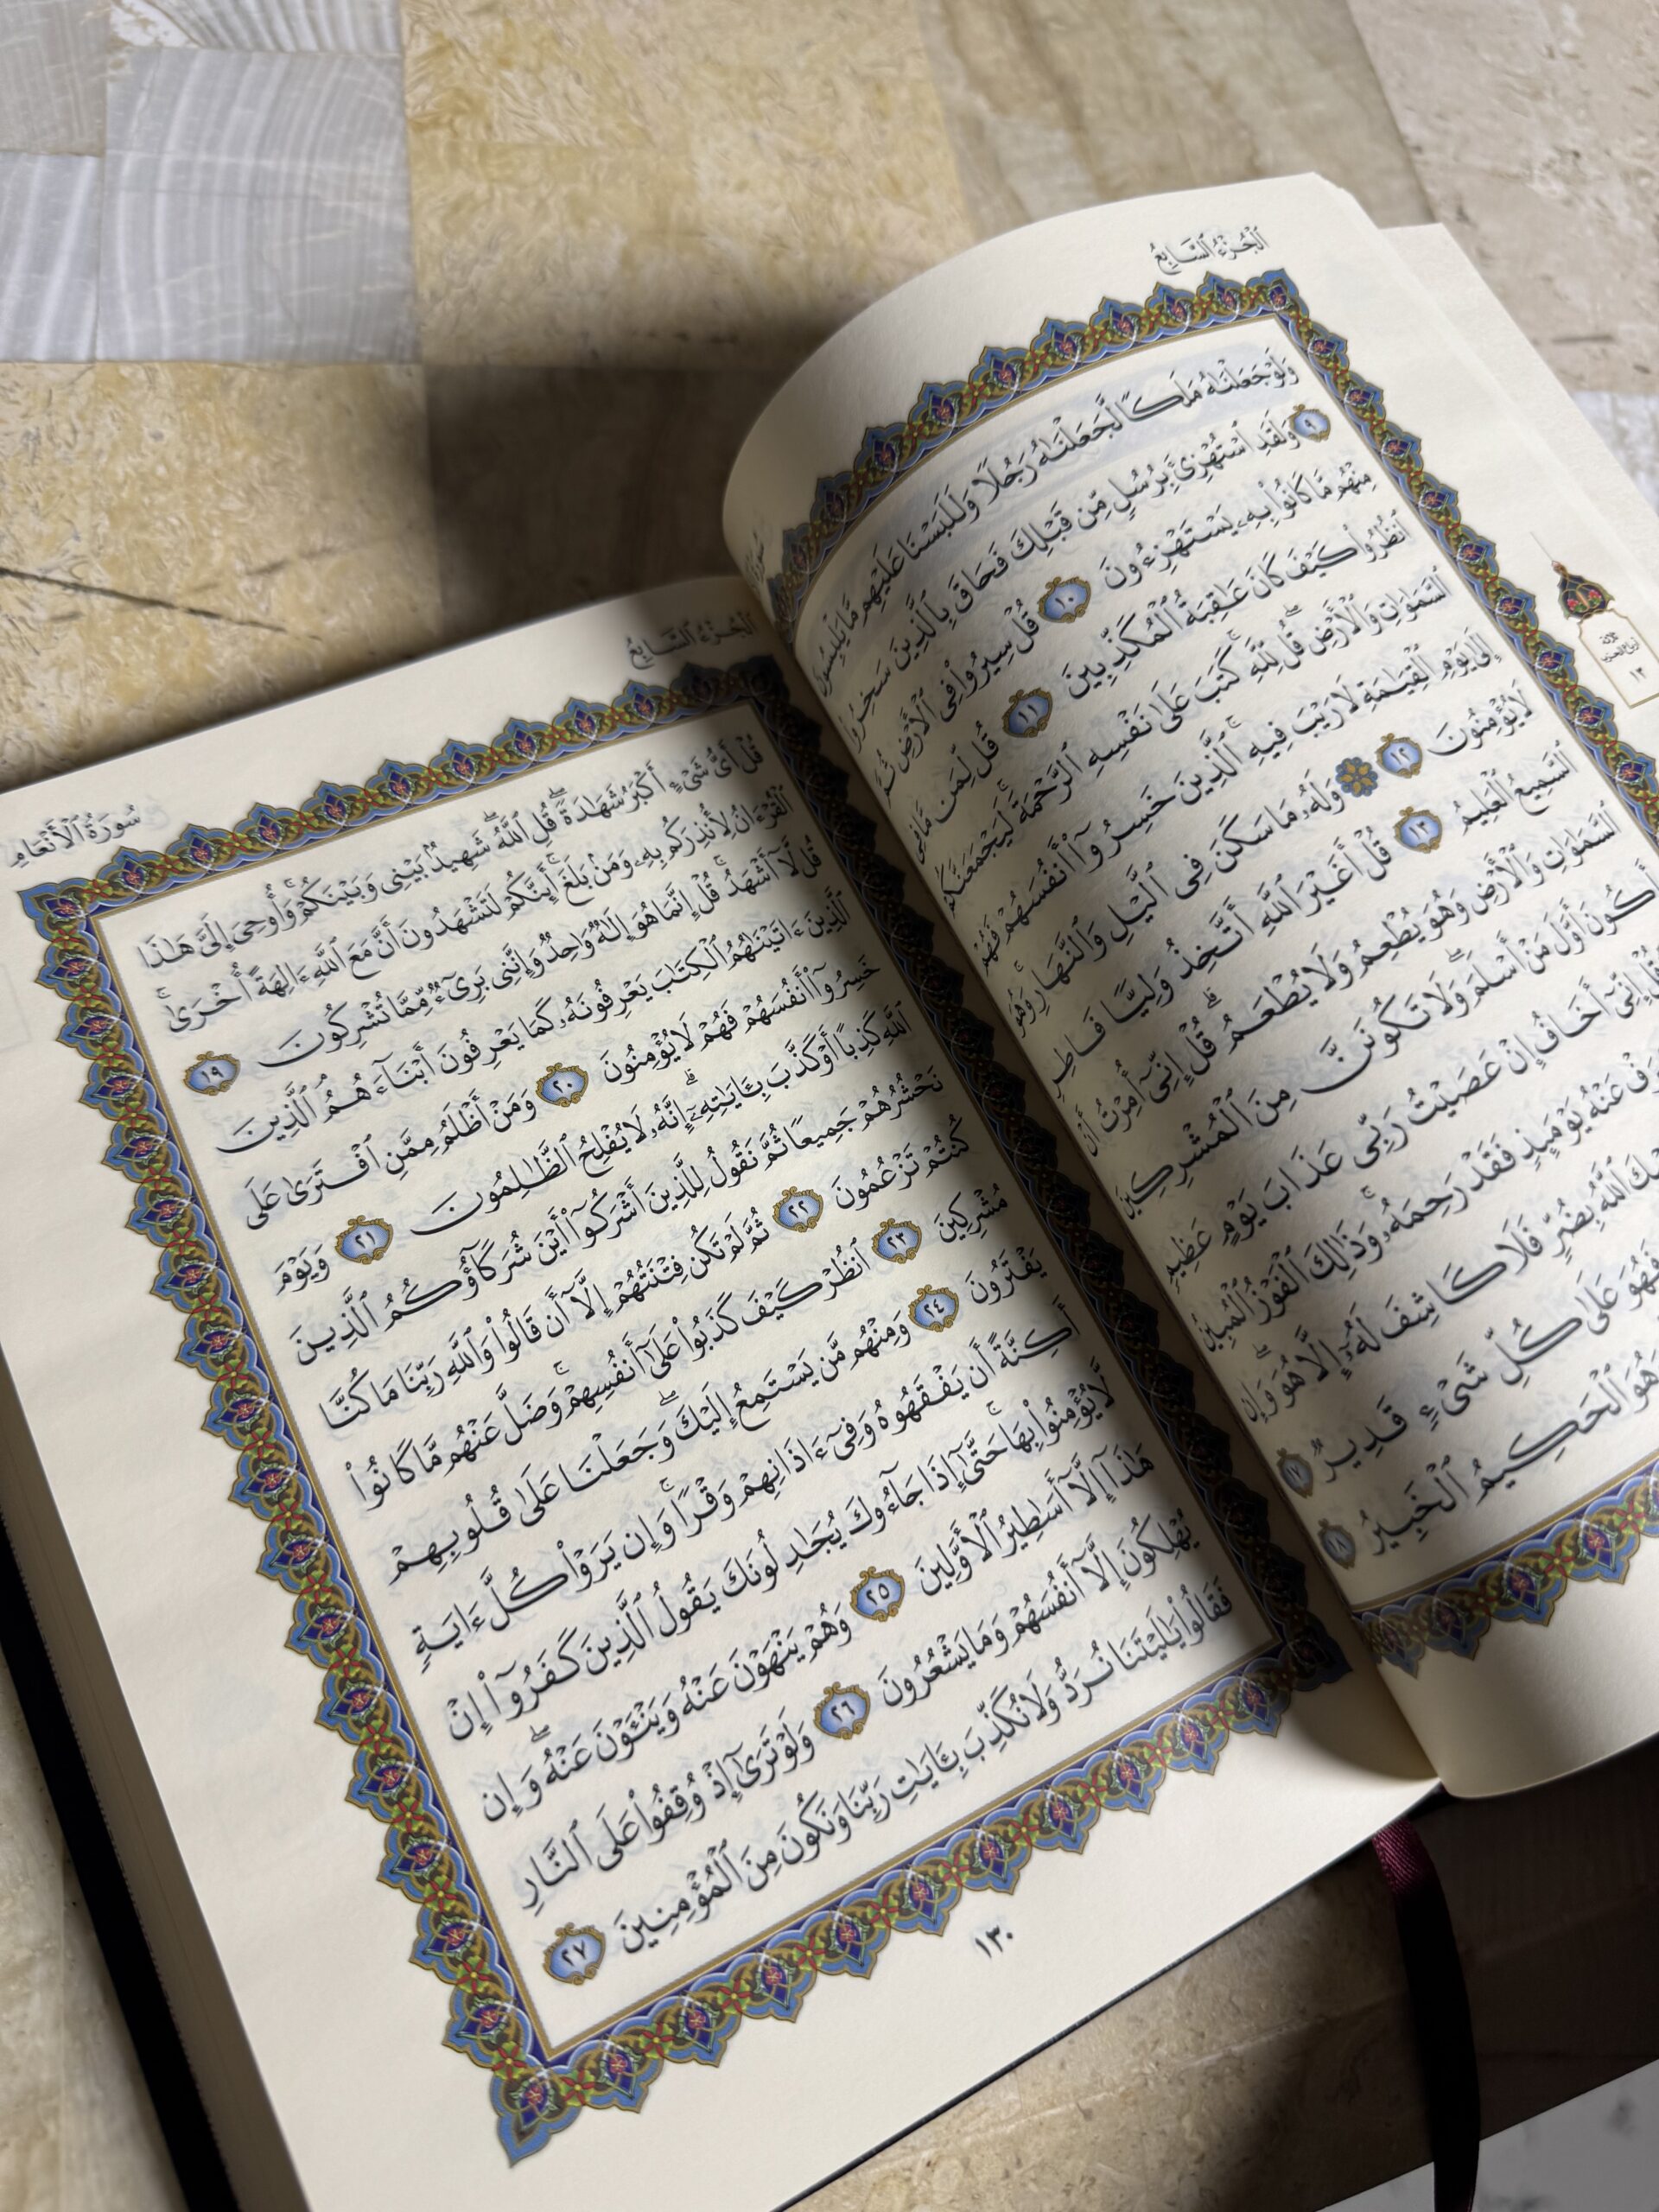 ٱلْجُزْءُ ٱلسَّابِعُ
وَلَوْ جَعَلْنَٰهُ مَلَكًا لَّجَعَلْنَٰهُ رَجُلًا وَلَلَبَسْنَا عَلَيْهِم مَّا يَلْبِسُونَ
٩ وَلَقَدِ ٱسْتُهْزِئَ بِرُسُلٍ مِّن قَبْلِكَ فَحَاقَ بِٱلَّذِينَ سَخِرُوا۟
مِنْهُم مَّا كَانُوا۟ بِهِۦ يَسْتَهْزِءُونَ ١٠ قُلْ سِيرُوا۟ فِى ٱلْأَرْضِ ثُمَّ
ٱنظُرُوا۟ كَيْفَ كَانَ عَٰقِبَةُ ٱلْمُكَذِّبِينَ ١١ قُل لِّمَن مَّا فِى
ٱلسَّمَٰوَٰتِ وَٱلْأَرْضِ ۖ قُل لِّلَّهِ ۚ كَتَبَ عَلَىٰ نَفْسِهِ ٱلرَّحْمَةَ ۚ لَيَجْمَعَنَّكُمْ
إِلَىٰ يَوْمِ ٱلْقِيَٰمَةِ لَا رَيْبَ فِيهِ ۚ ٱلَّذِينَ خَسِرُوٓا۟ أَنفُسَهُمْ فَهُمْ
لَا يُؤْمِنُونَ ١٢ ۞ وَلَهُۥ مَا سَكَنَ فِى ٱلَّيْلِ وَٱلنَّهَارِ ۚ وَهُوَ
ٱلسَّمِيعُ ٱلْعَلِيمُ ١٣ قُلْ أَغَيْرَ ٱللَّهِ أَتَّخِذُ وَلِيًّا فَاطِرِ
ٱلسَّمَٰوَٰتِ وَٱلْأَرْضِ وَهُوَ يُطْعِمُ وَلَا يُطْعَمُ ۗ قُلْ إِنِّىٓ أُمِرْتُ أَنْ
أَكُونَ أَوَّلَ مَنْ أَسْلَمَ ۖ وَلَا تَكُونَنَّ مِنَ ٱلْمُشْرِكِينَ
قُلْ إِنِّىٓ أَخَافُ إِنْ عَصَيْتُ رَبِّى عَذَابَ يَوْمٍ عَظِيمٍ
عَنْهُ يَوْمَئِذٍ فَقَدْ رَحِمَهُۥ ۚ وَذَٰلِكَ ٱلْفَوْزُ ٱلْمُبِينُ
ٱللَّهُ بِضُرٍّ فَلَا كَاشِفَ لَهُۥٓ إِلَّا هُوَ ۖ وَإِن
فَهُوَ عَلَىٰ كُلِّ شَىْءٍ قَدِيرٌ ١٧
وَهُوَ ٱلْحَكِيمُ ٱلْخَبِيرُ ١٨
ٱلْجُزْءُ ٱلسَّابِعُ
سُورَةُ ٱلْأَنْعَامِ
قُلْ أَىُّ شَىْءٍ أَكْبَرُ شَهَٰدَةً ۖ قُلِ ٱللَّهُ ۖ شَهِيدٌۢ بَيْنِى وَبَيْنَكُمْ ۚ وَأُوحِىَ إِلَىَّ هَٰذَا
ٱلْقُرْءَانُ لِأُنذِرَكُم بِهِۦ وَمَنۢ بَلَغَ ۚ أَئِنَّكُمْ لَتَشْهَدُونَ أَنَّ مَعَ ٱللَّهِ ءَالِهَةً أُخْرَىٰ ۚ
قُل لَّآ أَشْهَدُ ۚ قُلْ إِنَّمَا هُوَ إِلَٰهٌ وَٰحِدٌ وَإِنَّنِى بَرِىٓءٌ مِّمَّا تُشْرِكُونَ ١٩
ٱلَّذِينَ ءَاتَيْنَٰهُمُ ٱلْكِتَٰبَ يَعْرِفُونَهُۥ كَمَا يَعْرِفُونَ أَبْنَآءَهُمُ ۘ ٱلَّذِينَ
خَسِرُوٓا۟ أَنفُسَهُمْ فَهُمْ لَا يُؤْمِنُونَ ٢٠ وَمَنْ أَظْلَمُ مِمَّنِ ٱفْتَرَىٰ عَلَى
ٱللَّهِ كَذِبًا أَوْ كَذَّبَ بِـَٔايَٰتِهِۦٓ ۗ إِنَّهُۥ لَا يُفْلِحُ ٱلظَّٰلِمُونَ ٢١ وَيَوْمَ
نَحْشُرُهُمْ جَمِيعًا ثُمَّ نَقُولُ لِلَّذِينَ أَشْرَكُوٓا۟ أَيْنَ شُرَكَآؤُكُمُ ٱلَّذِينَ
كُنتُمْ تَزْعُمُونَ ٢٢ ثُمَّ لَمْ تَكُن فِتْنَتُهُمْ إِلَّآ أَن قَالُوا۟ وَٱللَّهِ رَبِّنَا مَا كُنَّا
مُشْرِكِينَ ٢٣ ٱنظُرْ كَيْفَ كَذَبُوا۟ عَلَىٰٓ أَنفُسِهِمْ ۚ وَضَلَّ عَنْهُم مَّا كَانُوا۟
يَفْتَرُونَ ٢٤ وَمِنْهُم مَّن يَسْتَمِعُ إِلَيْكَ ۖ وَجَعَلْنَا عَلَىٰ قُلُوبِهِمْ
أَكِنَّةً أَن يَفْقَهُوهُ وَفِىٓ ءَاذَانِهِمْ وَقْرًا ۚ وَإِن يَرَوْا۟ كُلَّ ءَايَةٍ
لَّا يُؤْمِنُوا۟ بِهَا ۚ حَتَّىٰٓ إِذَا جَآءُوكَ يُجَٰدِلُونَكَ يَقُولُ ٱلَّذِينَ كَفَرُوٓا۟ إِنْ
هَٰذَآ إِلَّآ أَسَٰطِيرُ ٱلْأَوَّلِينَ ٢٥ وَهُمْ يَنْهَوْنَ عَنْهُ وَيَنْـَٔوْنَ عَنْهُ ۖ وَإِن
يُهْلِكُونَ إِلَّآ أَنفُسَهُمْ وَمَا يَشْعُرُونَ ٢٦ وَلَوْ تَرَىٰٓ إِذْ وُقِفُوا۟ عَلَى ٱلنَّارِ
فَقَالُوا۟ يَٰلَيْتَنَا نُرَدُّ وَلَا نُكَذِّبَ بِـَٔايَٰتِ رَبِّنَا وَنَكُونَ مِنَ ٱلْمُؤْمِنِينَ ٢٧
١٣٠